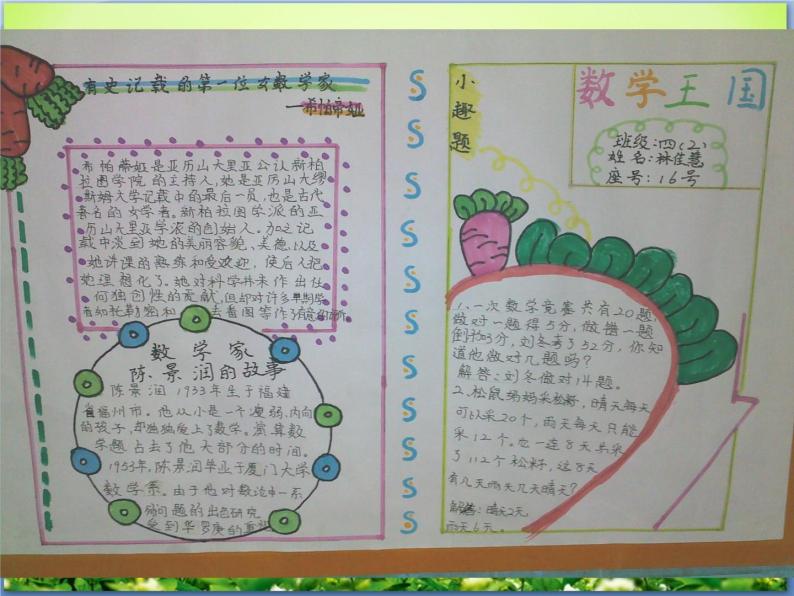 有史记载的第一位女数学家
——希帕蒂娅
希帕蒂娅是亚历山大里亚公认新柏
拉图学院的主持人,她是亚历山大缪
斯姆大学记载中的最后一页,也是古代
著名的女学者。新柏拉图学派的亚
历山大里亚学派的创始人。加之记
载中谈到她的美丽容貌、美德以及
她讲课的熟练和受欢迎,使后人把
她理想化了。她对科学并未作出任
何独创性的贡献,但却对许多早期学
者如托勒
数学家
陈景润的故事
陈景润1933年生于福建
省福州市。他从小是一个瘦弱、内向
的孩子,却独独爱上了数学。演算数
学题占去了他大部分的时间。
1953年,陈景润毕业于厦门大学
数学系。由于他对数论中一系
列问题的出色研究
受到华罗庚的重视
小趣题
数学王国
班级:四(2)
姓名:林佳慧
座号:16号
1、一次数学竞赛共有20题,
做对一题得5分,做错一题
倒扣3分,刘冬考了52分,你知
道他做对几题吗?
解答:刘冬做对14题。
2、松鼠妈妈采松籽,晴天每天
可以采20个,雨天每天只能
采12个。它一连8天共采
了112个松籽,这8天
有几天雨天几天晴天?
解答:晴天2天,
雨天6天。